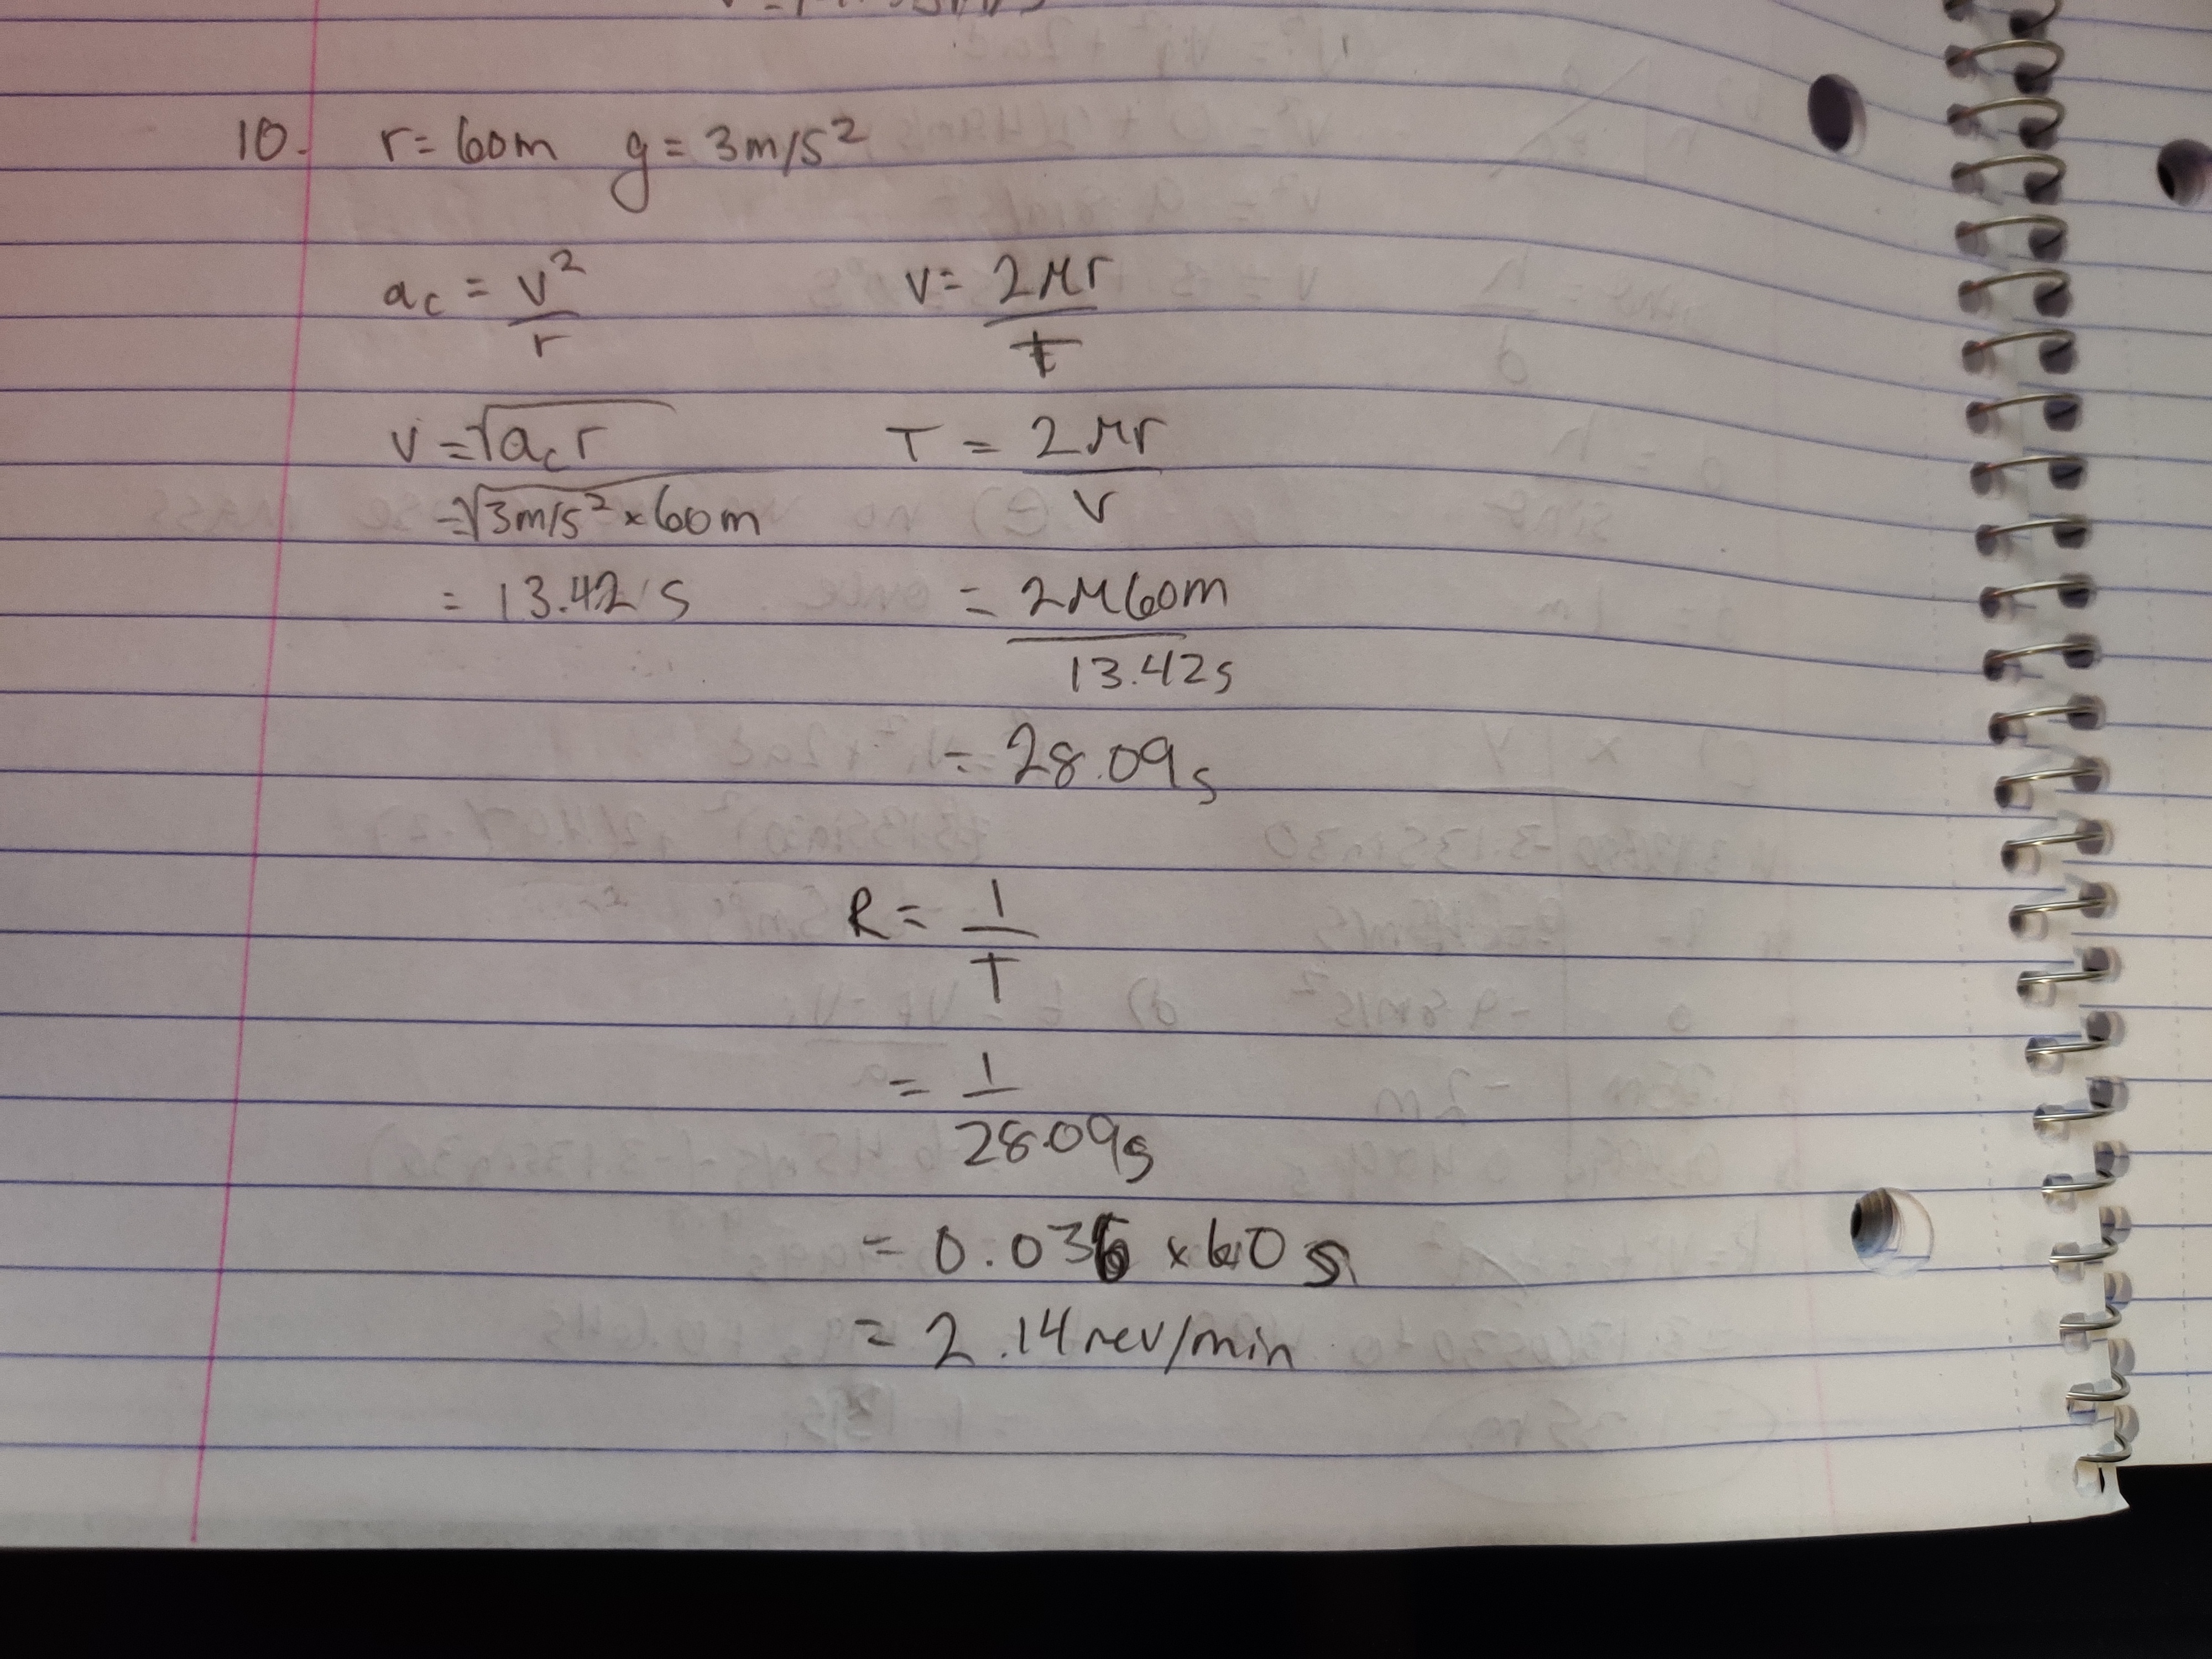 10. r = 60m g = 3m/s²
a_c = v²/r
v = √a_c r
= √3m/s² × 60m
= 13.42 s
v = 2πr/t
T = 2πr/v
= 2π60m/13.42s
= 28.09s
R = 1/T
= 1/28.09s
= 0.036 × 60 s
= 2.14 rev/min